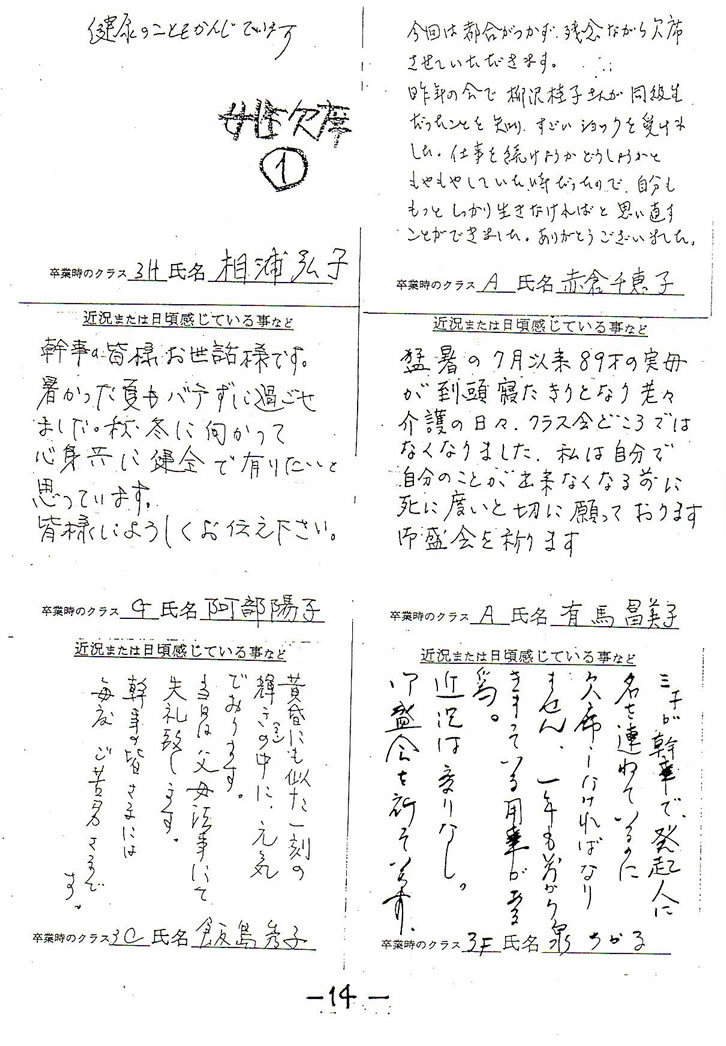 健康のこともかんじています
女性欠席
①
卒業時のクラス 3H 氏名 相浦弘子
今回は都合がつかず、残念ながら欠席
させていただきます。
昨年の会で 柳沢桂子さんが同級生
だったことを知り、すごいショックを受けま
した。仕事を続けようかどうしようかと
もやもやしていた時だったので、自分も
もっとしっかり生きなければと思い直す
ことができました。ありがとうございました。
卒業時のクラス A 氏名 赤倉千恵子
近況または日頃感じている事など
幹事の皆様お世話様です。
暑かった夏もバテずに過ごせ
ました。秋、冬に向かって
心身共に健全で有りたいと
思っています。
皆様によろしくお伝え下さい。
卒業時のクラス G 氏名 阿部陽子
近況または日頃感じている事など
猛暑の7月以来89才の実母
が到頭寝たきりとなり老々
介護の日々、クラス会どころでは
なくなりました、私は自分で
自分のことが出来なくなる前に
死に度いと切に願っております
御盛会を祈ります
卒業時のクラス A 氏名 有馬昌美子
近況または日頃感じている事など
黄昏にも似た一刻の
輝きの中に、元気
でおります。
当日は父母法事にて
失礼致します。
幹事の皆さまには
毎度ご苦労さまで
す。
卒業時のクラス 3C 氏名 飯島
近況または日頃感じている事など
幹事で、発起人に
名を連ねているのに
欠席しなければなり
ません、一年も前から
きまっている用事がある
為。
近況は変りなし。
御盛会を祈っています。
卒業時のクラス 3F 氏名 泉 ちかる
-14-